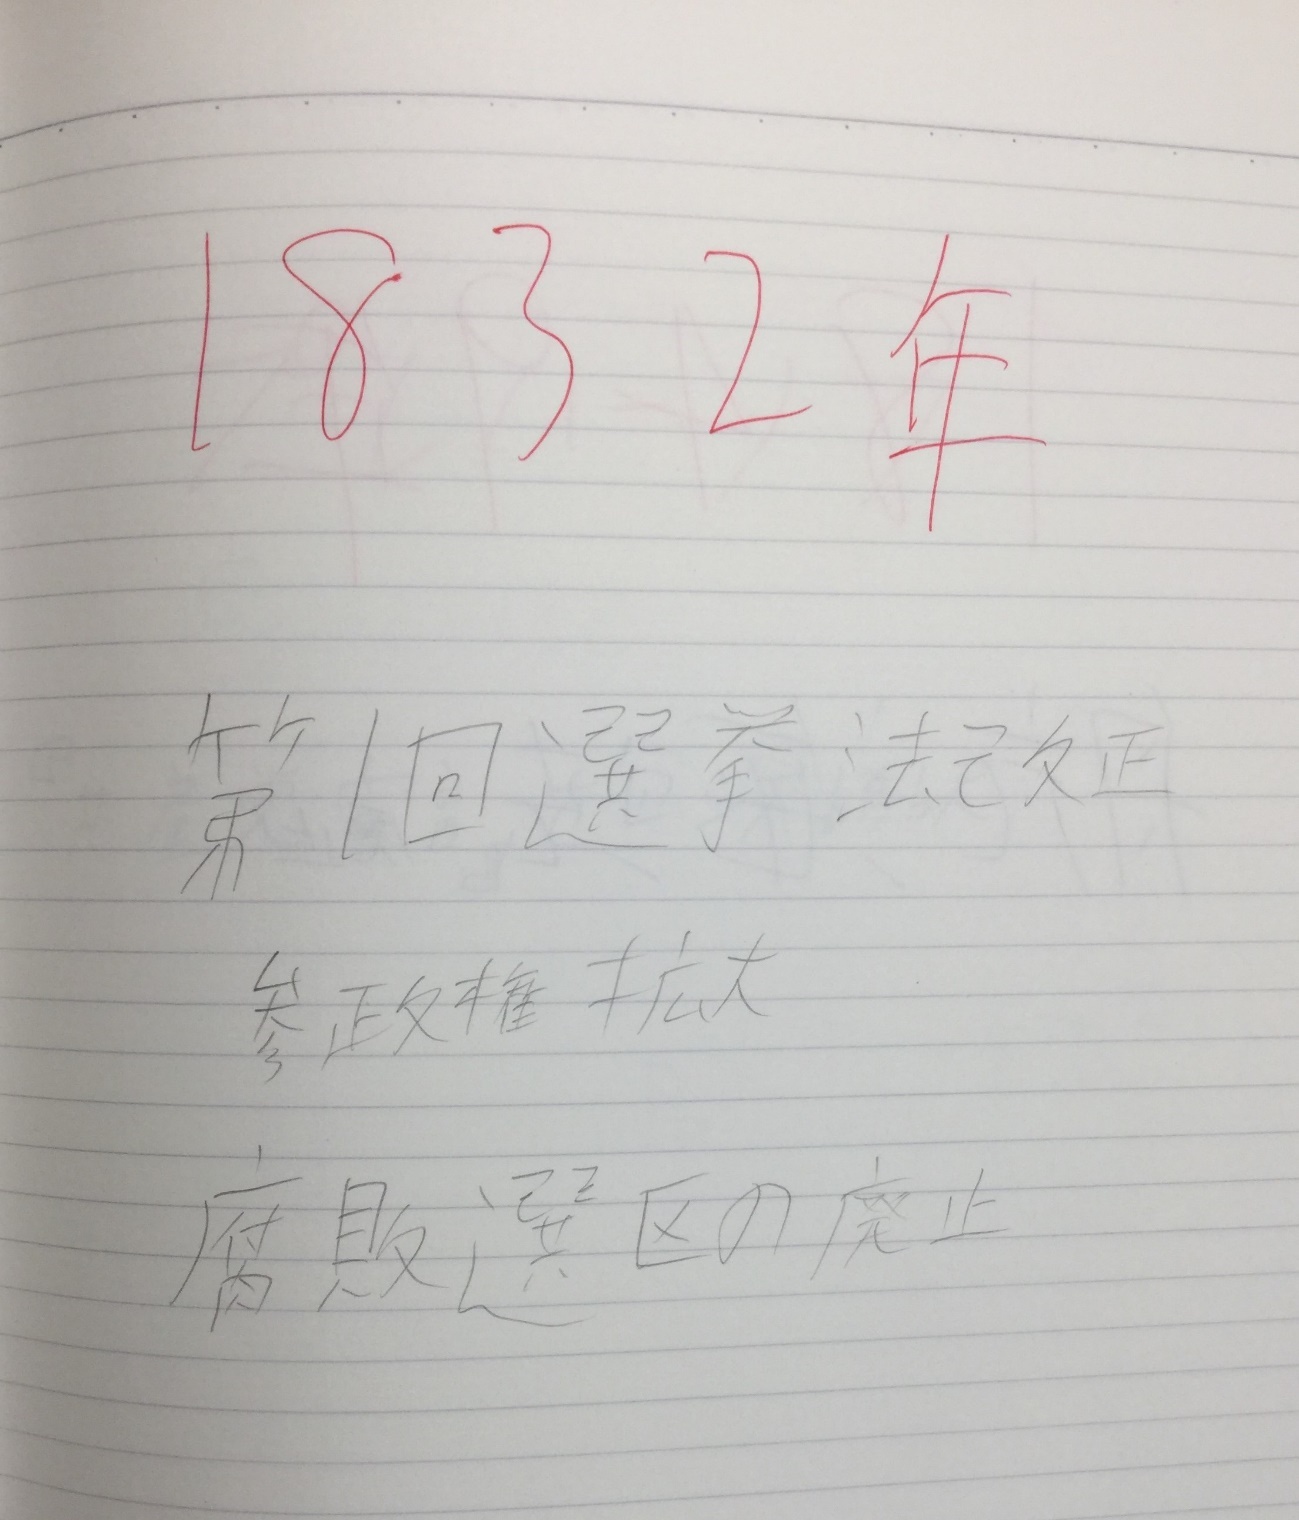 1832年
第1回選挙法改正
参政権拡大
腐敗選区の廃止